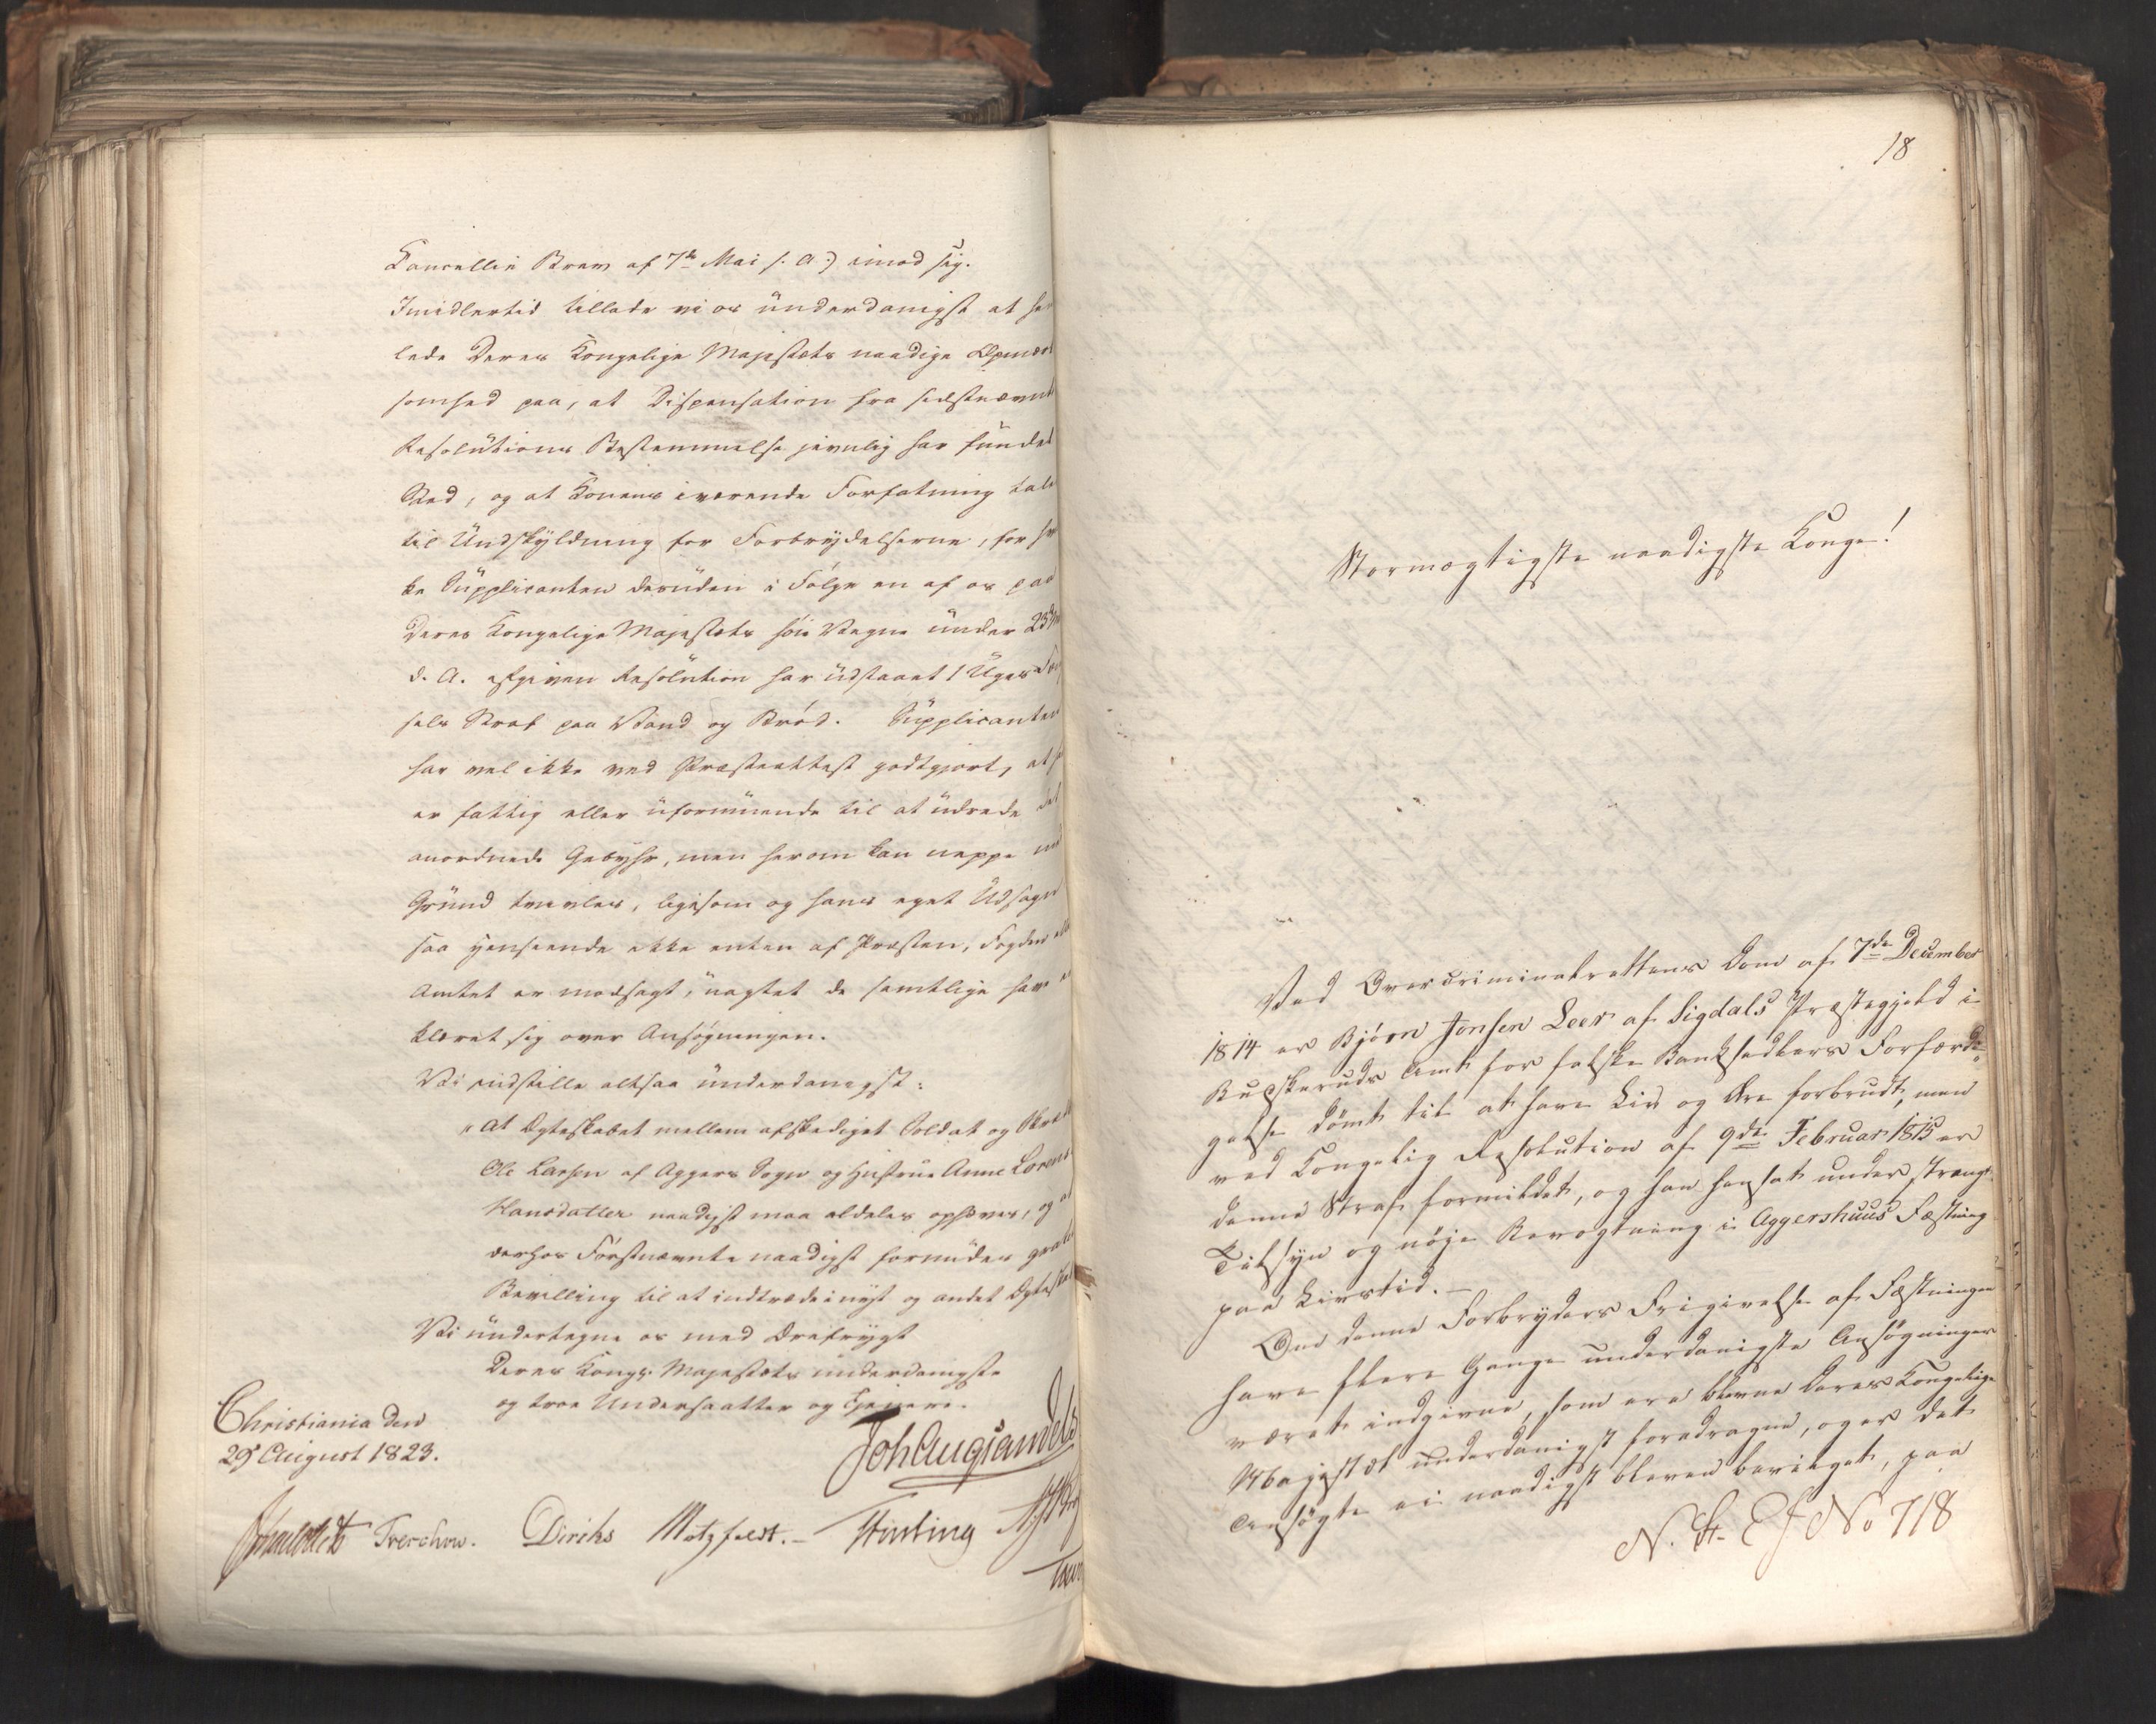 Cancellie Brev af 7de Mai s. A.) imod sig.
Imidlertid tillade vi os ünderdanigst at hen
lede Deres Kongelige Majestæts naadige Opmærk
somhed paa, at Dispensation fra sidstnævnte
Resolütions Bestemmelse jevnlig har fündet
Sted, og at Konens iværende Forfatning tale
til Undskÿldning for Forbrÿdelserne, for hvil
ke Süpplicanten desüden i Følge en af os paa
Deres Kongelige Majestæts høie Vegne ünder 23de
d. A. afgiven Resolütion har üdstaaet 1 Uges Fæng
sels Straf paa Vand og Brød. Süpplicanten
har vel ikke ved Præsteattest godtgjort, at
er fattig eller üformüende til at üdrede det
anordnede Gebÿhr, men herom kan neppe med
Gründ tvivles, ligesom og hans eget Udsagn
saa henseende ikke enten af Præsten, Fogden eller
Amtet er modsagt, üagtet de samtlige have er
klæret sig over Ansøgningen.
Vi indstille altsaa ünderdanigst:
"At Ægteskabet mellem afskediget Soldat og
Ole Larsen af Aggers Sogn og Hustrue Anne Lorens
Hansdatter naadigst maa aldeles ophæves, og at
derhos Førstnævnte naadigst formüdes gratis
Bevilling til at indtræde i nÿt og andet Ægteskab
Vi ündertegne os med Ærefrÿgt
Deres Kongl. Majestæts ünderdanigste
og troe Undersaatter og Tjenere.
Christiania den
29 August 1823.
Joh Aug Sandels
Treschow. Diriks Motzfeldt. –
18
Stormægtigste naadigste Konge!
Ved Overcriminalrettens Dom af 7de December
1814 er Bjørn Jonsen Leer af Sigdals Præstegjeld i
Buskeruds Amt for falske Banksedlers Forfærdi-
gelse dømt til at have Liv og Ære forbrudt, men
ved Kongelig Resolution af 9de Februar 1815 er
denne Straf formildet, og han hensat under strengt
Tilsyn og nøje Bevogtning i Aggershuus Fæstning
paa Livstid. –
Om denne Forbryders Frigivelse af Fæstningen
have flere Gange underdanigste Ansøgninger
været indgivne, som ere blevne Deres Kongelige
Majestæt underdanigst foredragne, og er det
Ansøgte ei naadigst bleven bevilget, paa
N. St. E J No 718